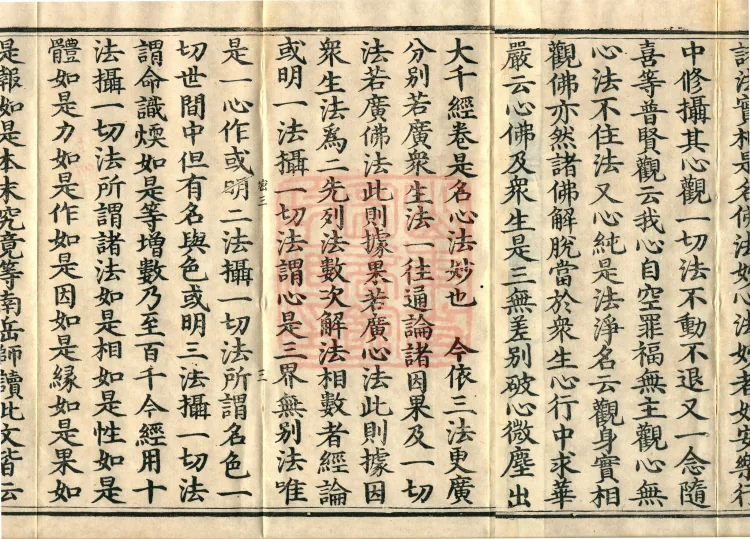 諸法實相是名佛法妙心法妙者如安樂行
中修攝其心觀一切法不動不退又一念隨
喜等普賢觀云我心自空罪福無主觀心無
心法不住法又心純是法淨名云觀身實相
觀佛亦然諸佛解脫當於衆生心行中求華
嚴云心佛及衆生是三無差別破心微塵出
大千經卷是名心法妙也　今依三法更廣
分別若廣衆生法一往通論諸因果及一切
法若廣佛法此則據果若廣心法此則據因
衆生法爲二先列法數次解法相數者經論
或明一法攝一切法謂心是三界無別法唯
是一心作或明二法攝一切法所謂名色一
切世間中但有名與色或明三法攝一切法
謂命識煖如是等增數乃至百千今經用十
法攝一切法所謂諸法如是相如是性如是
體如是力如是作如是因如是縁如是果如
是報如是本末究竟等南岳師讀此文皆云